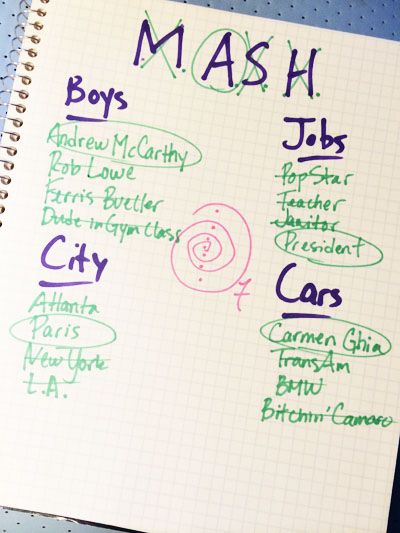 M A S H
Boys
Andrew McCarthy
Rob Lowe
Ferris Bueller
Dude in Gym Class
City
Atlanta
Paris
New York
L.A.
7
Jobs
Pop Star
Teacher
Janitor
President
Cars
Carmen Ghia
TransAm
BMW
Bitchin' Camaro